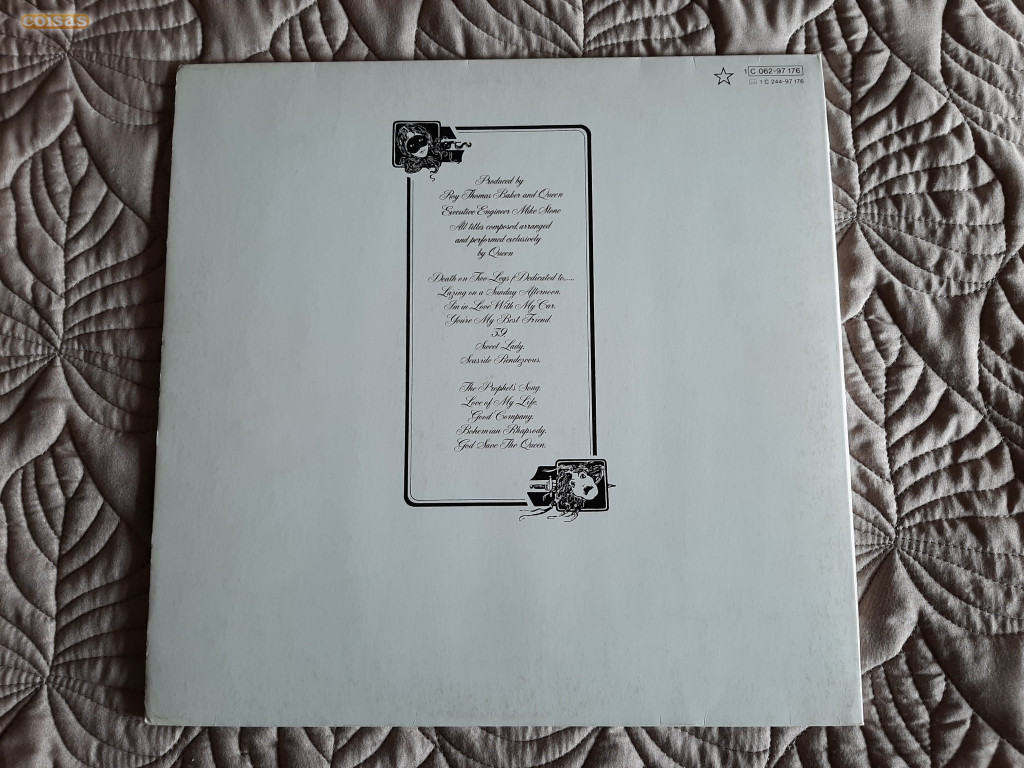 coisas
1 C 062-97 176
1 C 244-97 176
Produced by
Roy Thomas Baker and Queen
Executive Engineer Mike Stone
All titles composed, arranged
and performed exclusively
by Queen
Death on Two Legs (Dedicated to.....
Lazing on a Sunday Afternoon.
I'm in Love With My Car.
You're My Best Friend.
39
Sweet Lady.
Seaside Rendezvous.
The Prophet's Song.
Love of My Life.
Good Company.
Bohemian Rhapsody.
God Save The Queen.